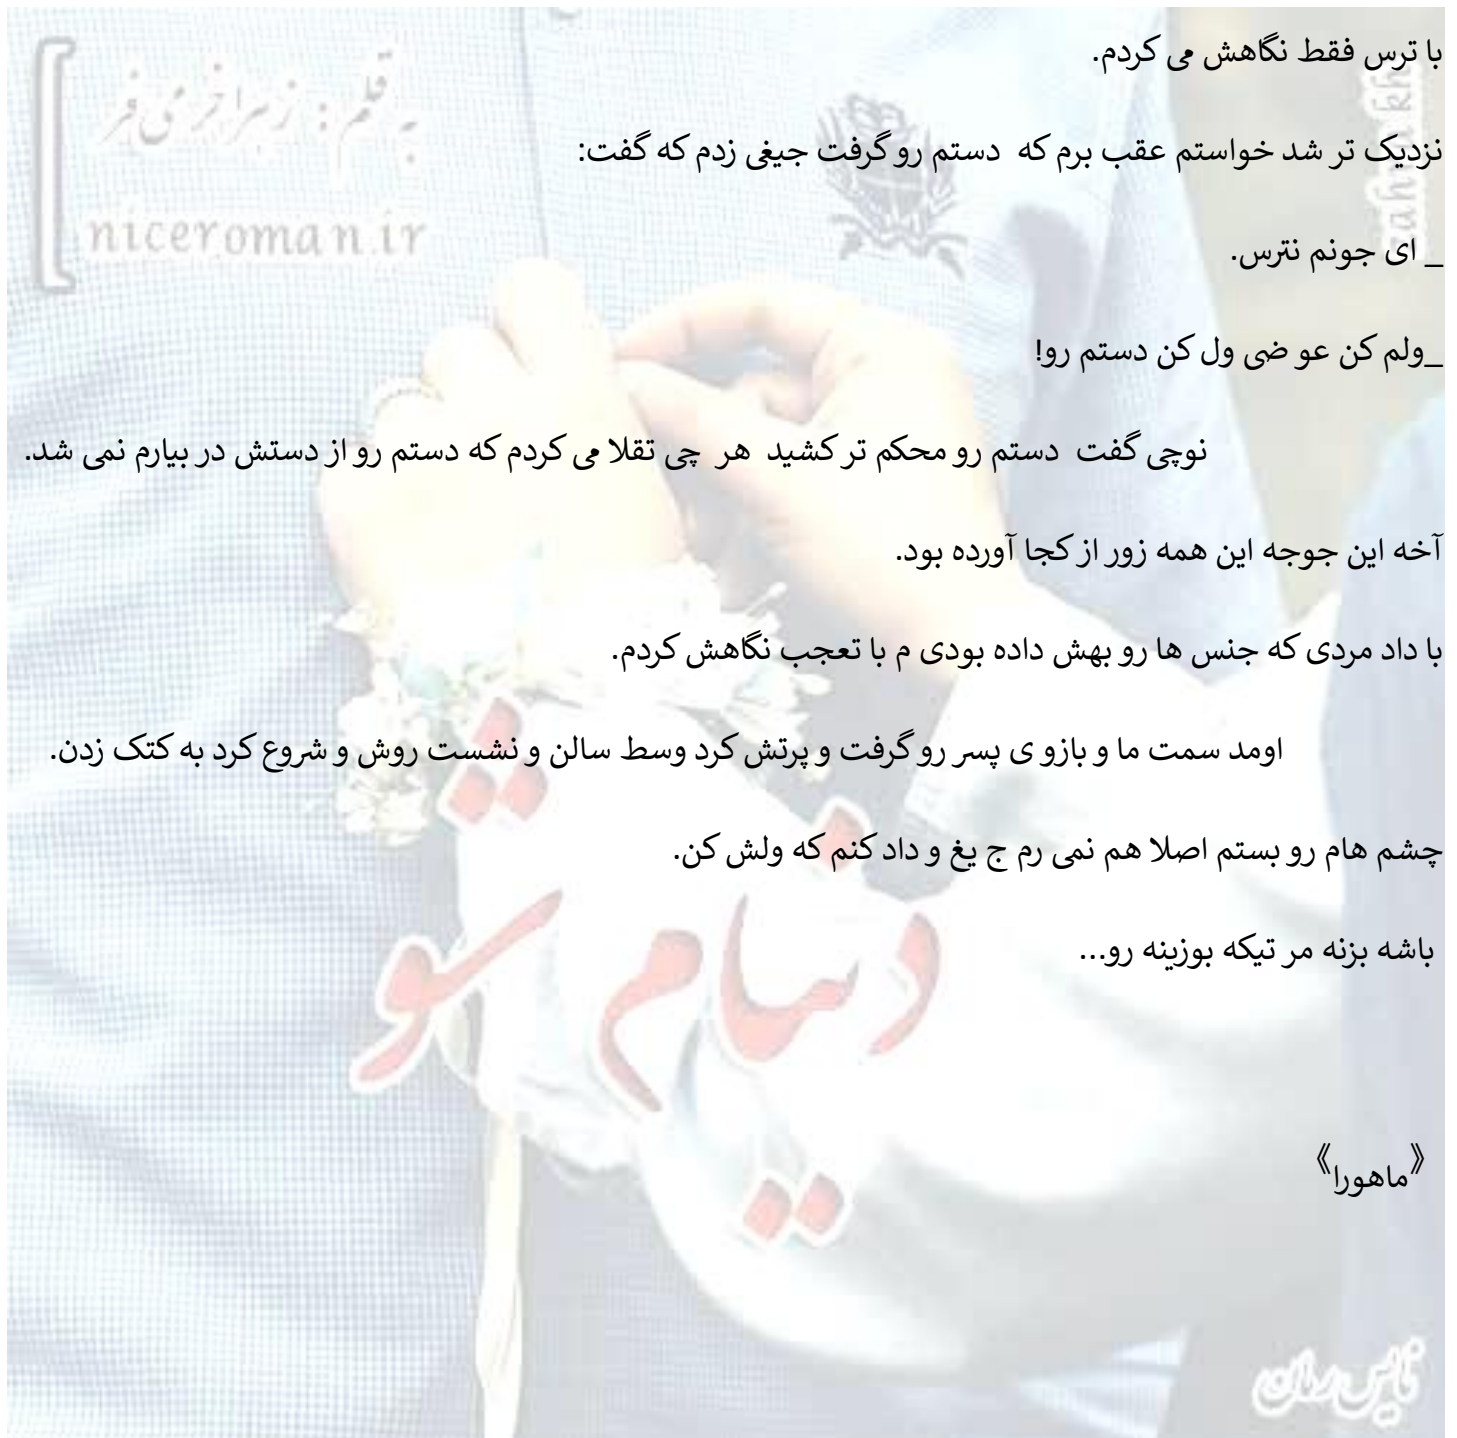 با ترس فقط نگاهش می کردم.
نزدیک تر شد خواستم عقب برم که دستم رو گرفت جیغی زدم که گفت:
_ ای جونم نترس.
_ولم کن عو ضی ول کن دستم رو!
نوچی گفت دستم رو محکم تر کشید هر چی تقلا می کردم که دستم رو از دستش در بیارم نمی شد.
آخه این جوجه این همه زور از کجا آورده بود.
با داد مردی که جنس ها رو بهش داده بودی م با تعجب نگاهش کردم.
اومد سمت ما و بازو ی پسر رو گرفت و پرتش کرد وسط سالن و نشست روش و شروع کرد به کتک زدن.
چشم هام رو بستم اصلا هم نمی رم ج یغ و داد کنم که ولش کن.
باشه بزنه مر تیکه بوزینه رو...
《ماهورا》
به قلم : زهرا خرمی فر
niceroman.ir
دنیام شو
نایس رمان